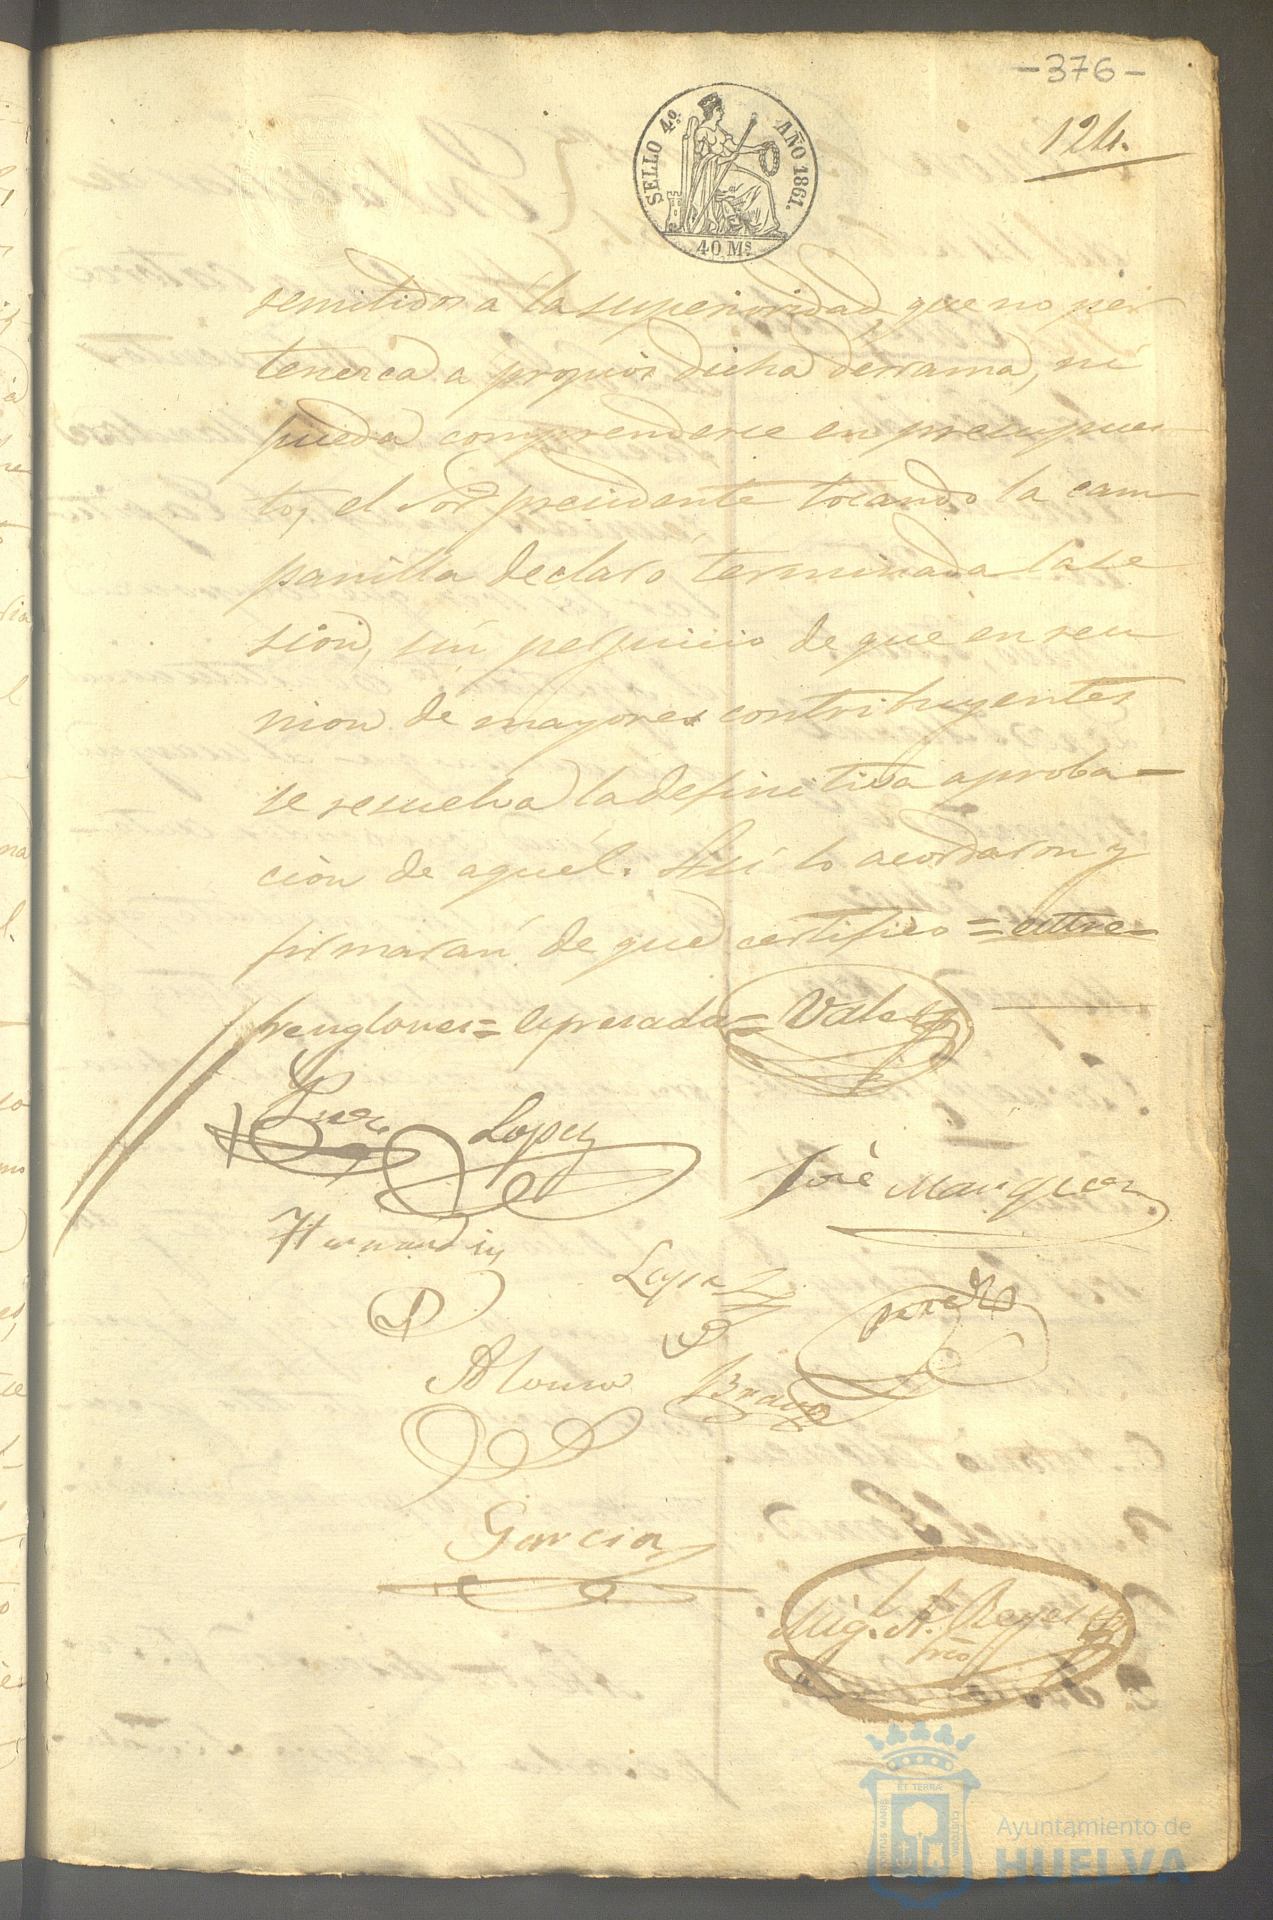 -376-
SELLO 4.º AÑO 1861.
40 Ms
124.
remitidos á la superioridad, que no per
tenezca á propios dicha derrama, ni
pueda comprenderse en presupues
to, el Sor presidente tocando la cam
panilla declaró terminada la se
sion, sin perjuicio de que en reu
nion de mayores contribuyentes
se resuelva la definitiva aproba-
ción de aquel. Así lo acordaron y
firmarán de que certifico = entre-
renglones = espresada = Vale
Lopez
José Marquez
Hernandez
Lopez
Paredes
Alonso
Bravo
Garcia
Mig. A. Reyes
srio
ET TERRÆ
PORTUS MARIS
CUSTODIA
Ayuntamiento de
HUELVA